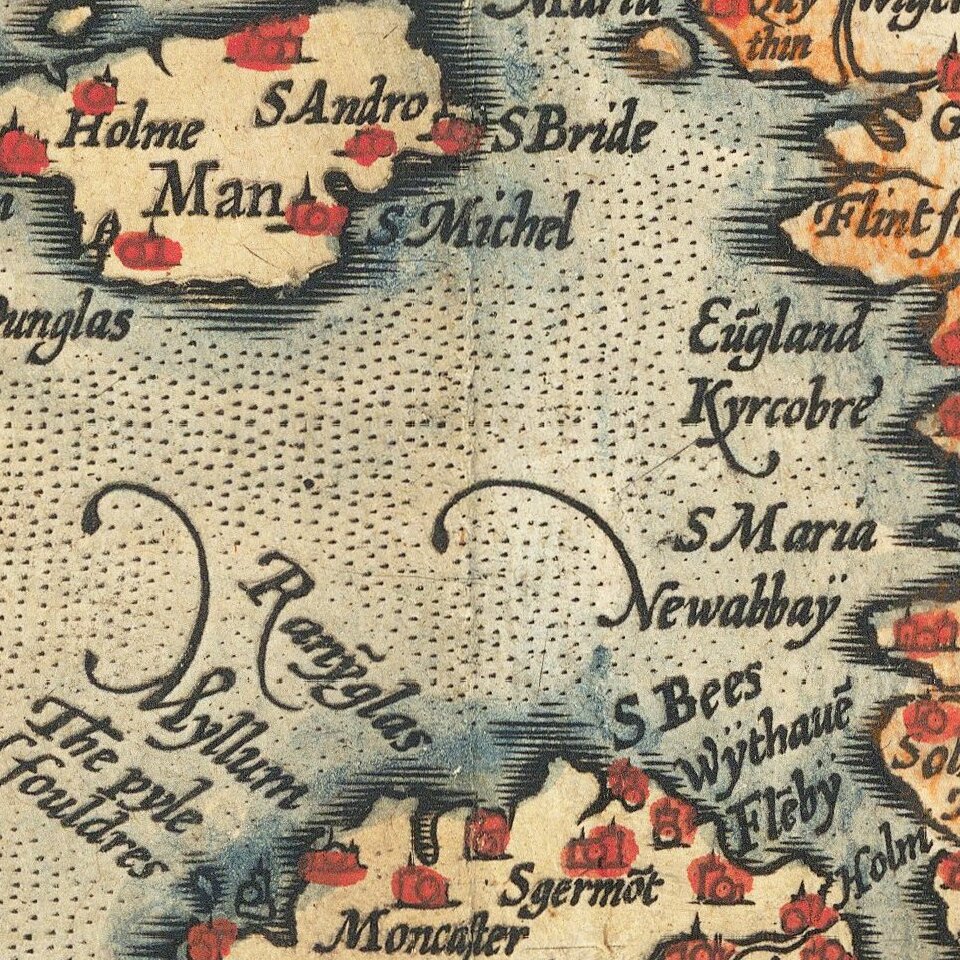 Maria
Quy
thin
SAndro
Holme
SBride
Man
S Michel
Flint
Dunglas
Eũgland
Kyrcobre
S Maria
Newabbaÿ
Ranÿglas
Myllum
The pyle
fouldres
S Bees
Wÿthauẽ
Flẽbÿ
Holm
Sgermõt
Moncaster